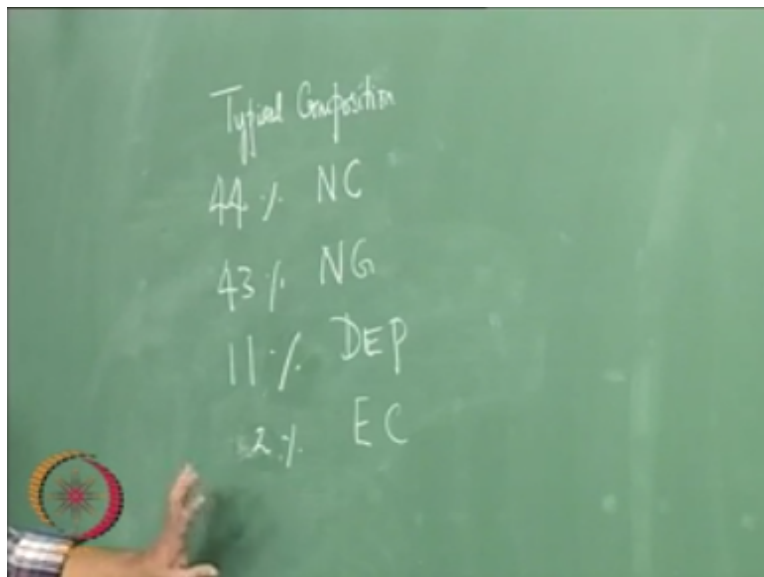 Typical Composition
44% NC
43% NG
11% DEP
2% EC